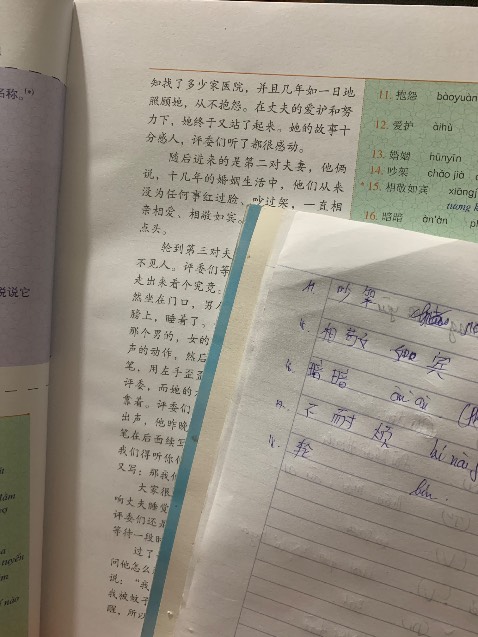 名称。(*)
说说它
知找了多少家医院，并且几年如一日地
照顾她，从不抱怨。在丈夫的爱护和努
力下，她终于又站了起来。她的故事十
分感人，评委们听了都很感动。
随后近来的是第二对夫妻，他俩
说，十几年的婚姻生活中，他们从来
没为任何事红过脸、吵过架，一直相
亲相爱、相敬如宾。
点头。
轮到第三对夫
不见人。评委们等
夫出来看个究竟。
然坐在门口，男人
膀上，睡着了。
那个男的，女的
声的动作，然后
笔，用左手歪歪
评委，而她的
靠着。评委们
出声，他昨晚
笔在后面续写
我们得听你们
又写：那我们
大家很
响丈夫睡觉
评委们还是
等待一段时
过了
问他怎么
说：“我
我被蚊子
醒，所以
11. 抱怨 bàoyuàn
12. 爱护 àihù
13. 婚姻 hūnyīn
14. 吵架 chǎo jià
15. 相敬如宾 xiāngj
16. 暗暗 àn'àn
吵架
相敬 如宾
暗暗
不耐烦
轮